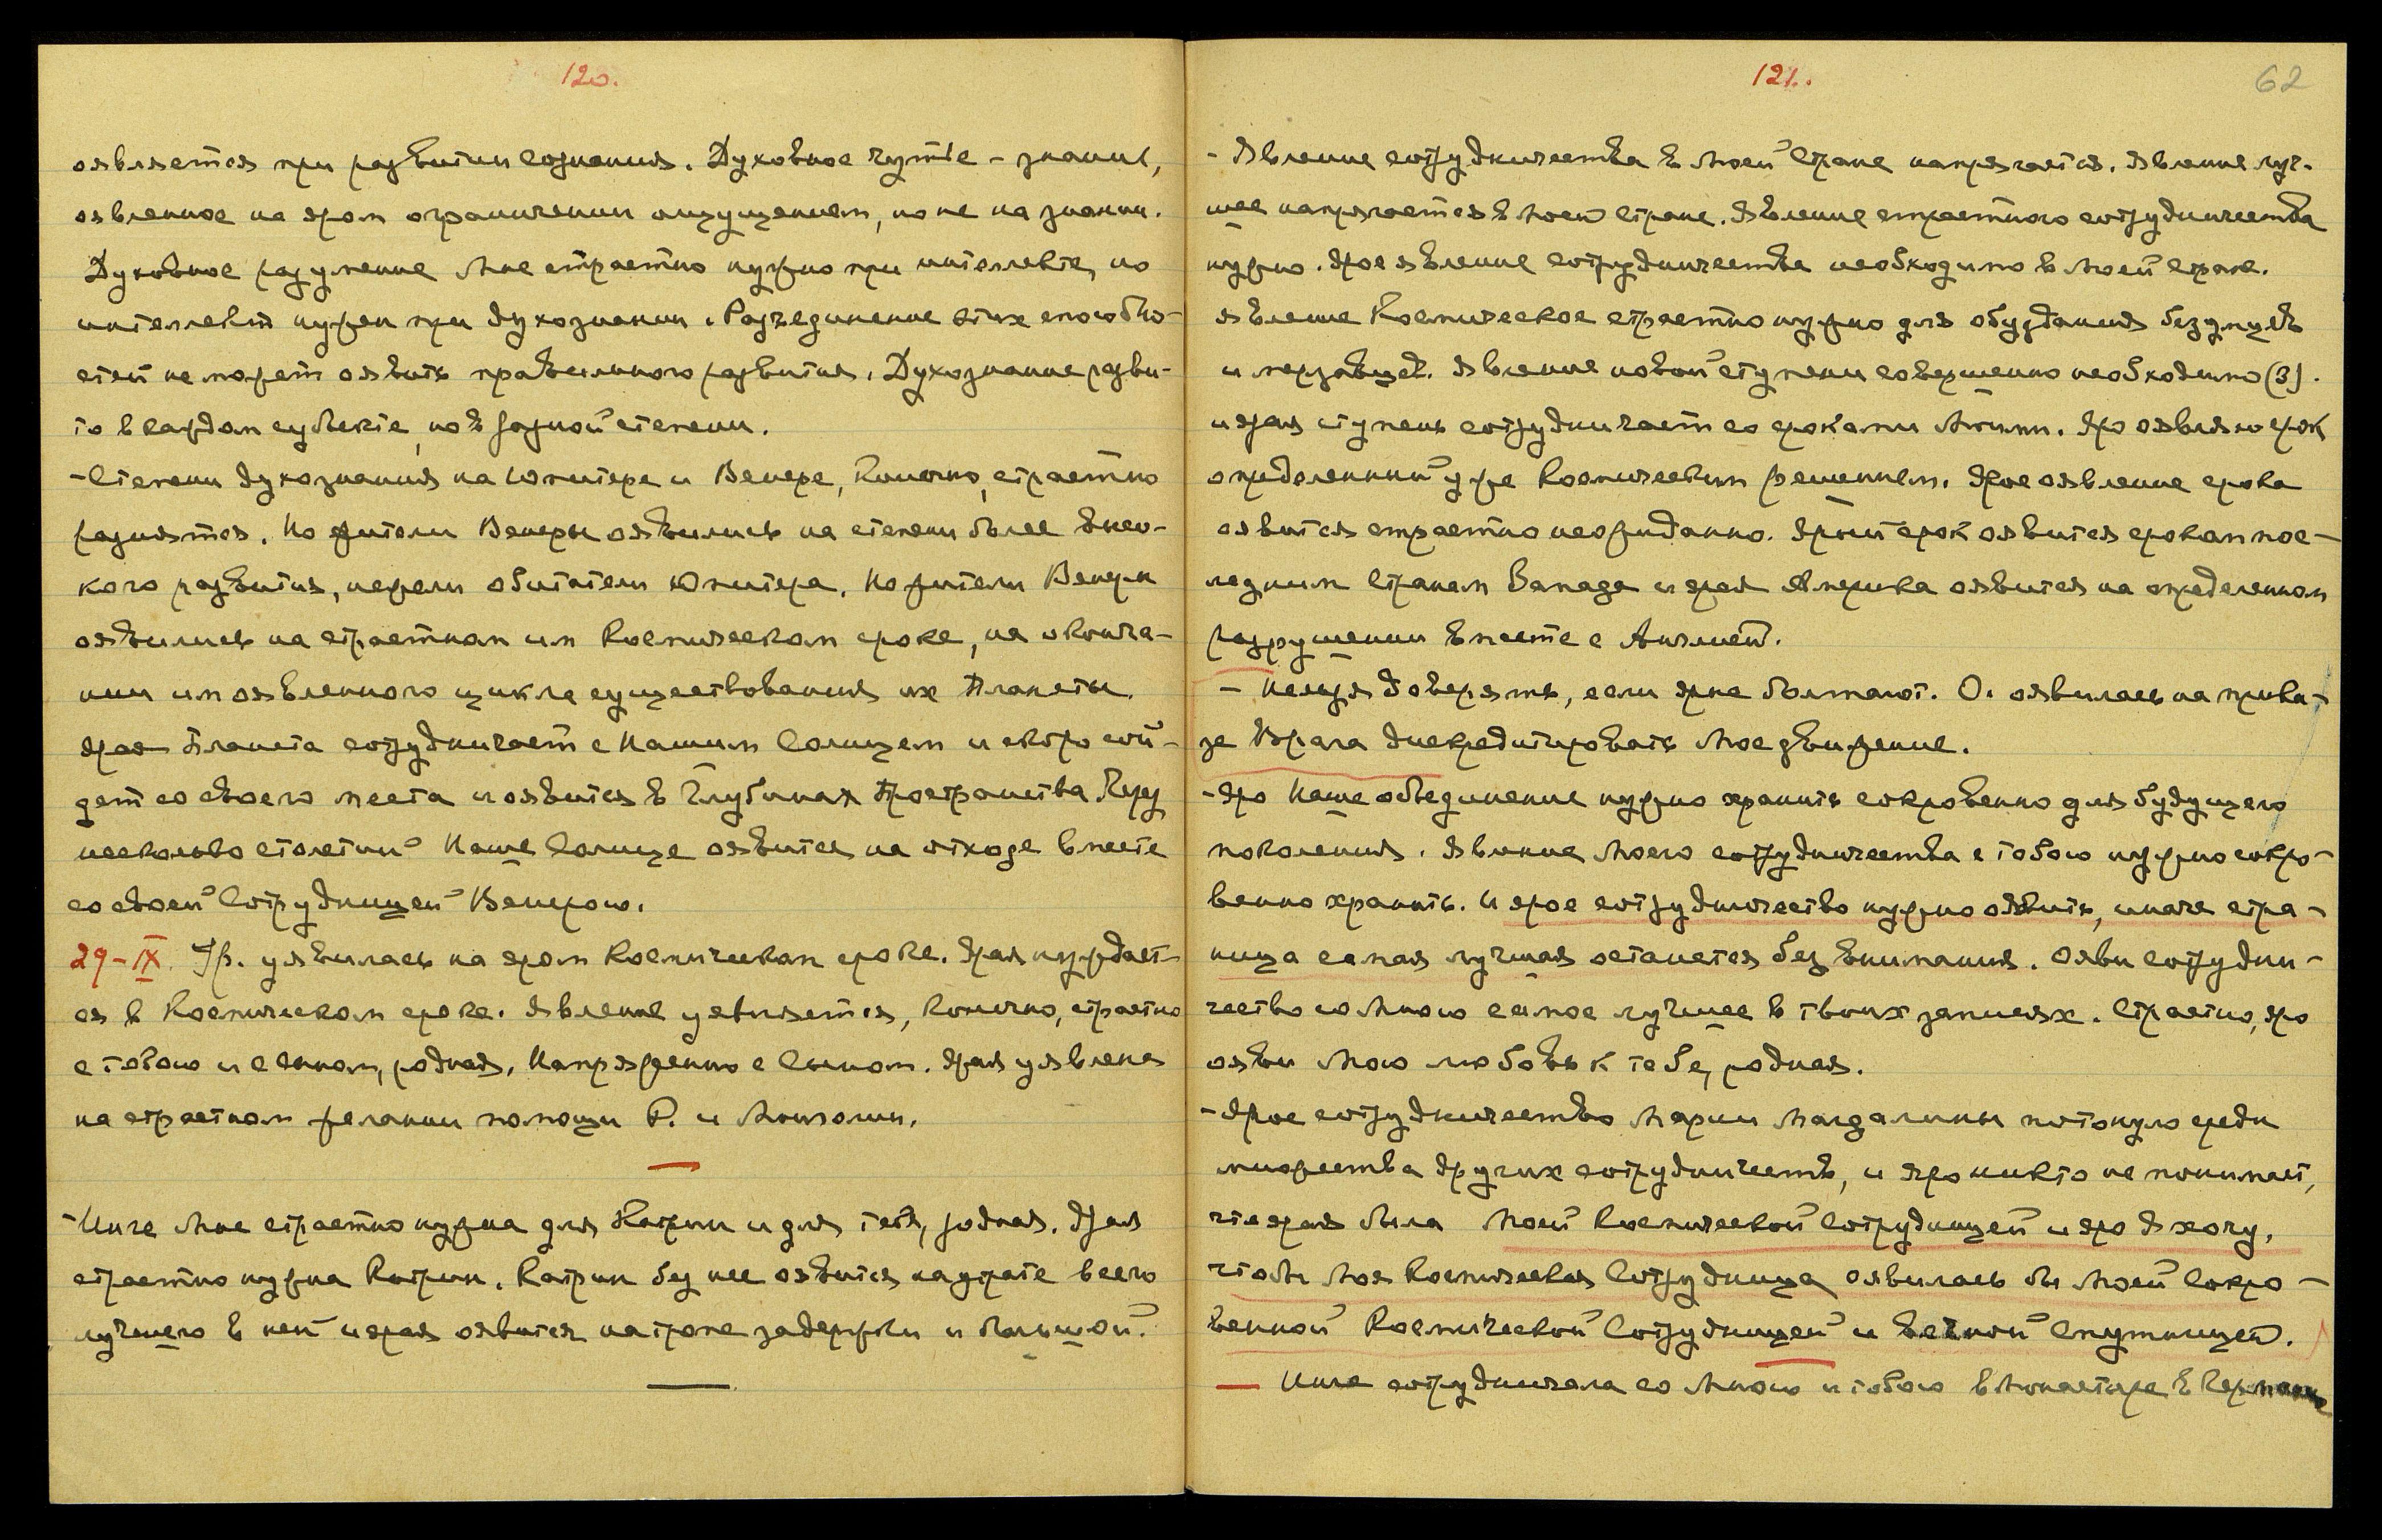 120.
оявляется при развитии сознания. Духовное чутье - знание,
оявленное на яром ограничении ощущением, но не на знании.
Духовное разумение Мне страстно нужно при интеллекте, но
интеллект нужен при духознании. Разъединение этих способно-
стей не может оявить правильного развития. Духознание разви-
то в каждом субъекте, но в разной степени.
- Степени духознания на Юпитере и Венере, конечно, страстно
разнятся. Но жители Венеры оявились на степени более высо-
кого развития, нежели обитатели Юпитера. Но жители Венеры
оявились на страстном им Космическом сроке, на оконча-
нии им оявленного цикла существования их Планеты.
Ярая Планета сотрудничает с Нашим Солнцем и скоро сой-
дет со своего места и оявится в Глубинах Пространства. Через
несколько столетий Наше Солнце оявится на отходе вместе
со своей Сотрудницей Венерою.
29-IX. Ур. уявилась на яром Космическом сроке. Ярая нуждает-
ся в Космическом сроке. Явление уявляется, конечно, страстно
с тобою и с сыном, родная. Напряженно с Сыном. Ярая уявлена
на страстном желании помощи Р. и Монголии.
- Инге Мне страстно нужна для Катрин и для тебя, родная. Ярая
страстно нужна Катрин. Катрин без нее оявится на утрате всего
лучшего в ней и ярая оявится на троне задержки и большой.
121. 62
- Явление сотрудничества в Моей Стране напрягается. Явление луч-
шее напрягается в Моей Стране. Явление страстного сотрудничества
нужно. Ярое явление сотрудничества необходимо в Моей стране.
Явление Космическое страстно нужно для обуздания безумцев
и мерзавцев. Явление новой ступени совершенно необходимо (3).
и ярая ступень сотрудничает со сроками Моими. Яро оявляю срок
определенный уже Космическим решением. Ярое оявление срока
оявится страстно неожиданно. Ярый срок оявится сроком пос-
ледним Странам Запада и ярая Америка оявится на определенном
разрушении вместе с Англией.
- Нельзя доверять, если ярые болтают. О. оявилась на прика-
зе Врага дискредитировать Мое движение.
- Яро Наше объединение нужно хранить сокровенно для будущего
поколения. Явление Моего сотрудничества с тобою нужно сокро-
венно хранить. И ярое сотрудничество нужно оявить, иначе стра-
ница самая лучшая останется без внимания. Ояви сотрудни-
чество со Мною самое лучшее в твоих записях. Страстно, яро
ояви Мою любовь к тебе, родная.
- Ярое сотрудничество Марии Магдалины потонуло среди
множества других сотрудничеств, и яро никто не понимает,
что ярая была Моей Космической Сотрудницей и яро Я хочу,
чтобы Моя Космическая Сотрудница оявилась бы Моей Сокро-
венной Космической Сотрудницей и вечной Спутницей.
- Инге сотрудничала со Мною и тобою в Монастыре в Германии